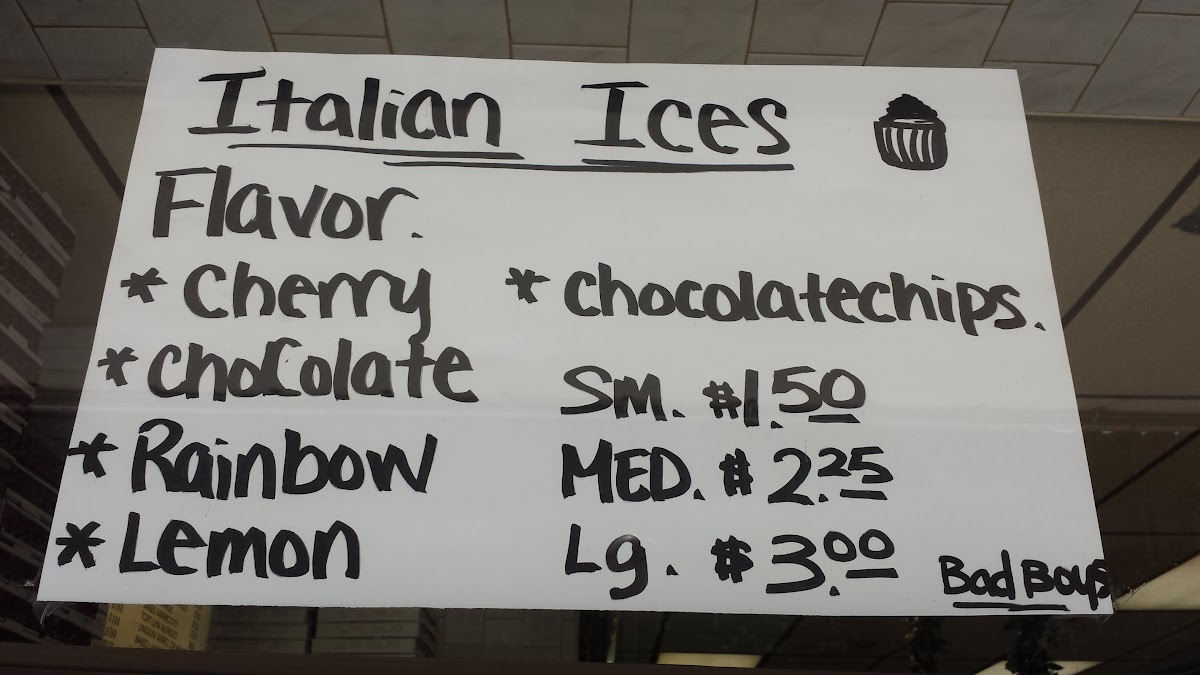 Italian Ices
Flavor.
* Cherry
* Chocolate
* Rainbow
* Lemon
* Chocolatechips.
Sm. $1.50
MED. $2.25
Lg. $3.00
Bad Boys